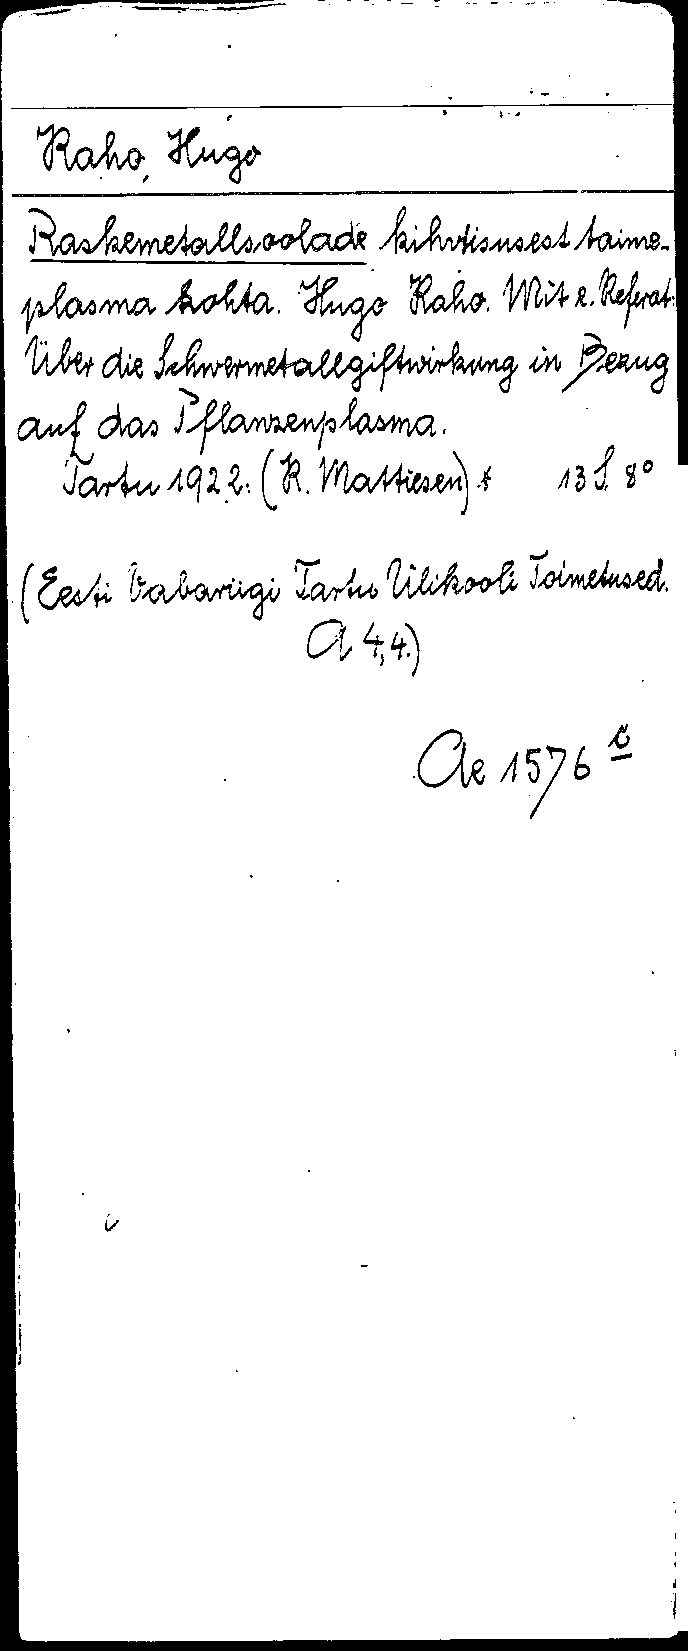 Kaho, Hugo
Raskemetallsoolade kihvtisusest taime-
plasma kohta. Hugo Kaho. Mit e. Referat:
Über die Schwermetallgiftwirkung in Bezug
auf das Pflanzenplasma.
Tartu 1922: (K. Mattiesen) 13 S. 8°
(Eesti Vabariigi Tartu Ülikooli Toimetused.
A 4,4.)
Ae 1576 c